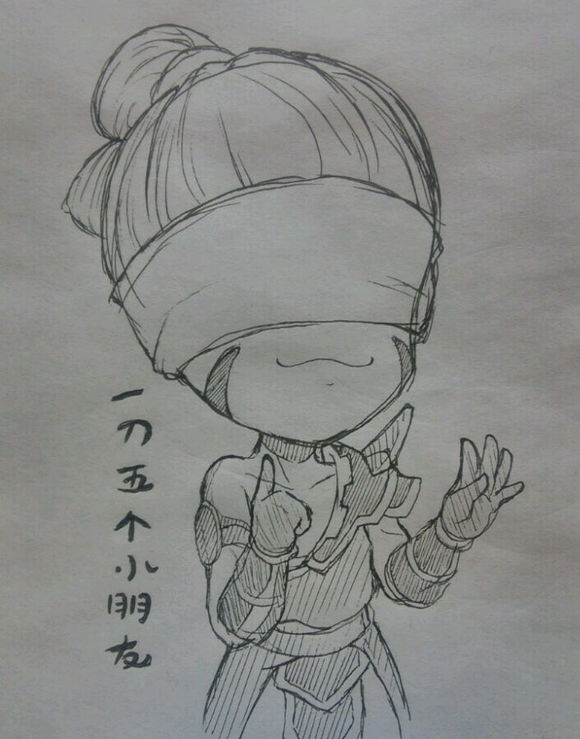 一刀五个小朋友